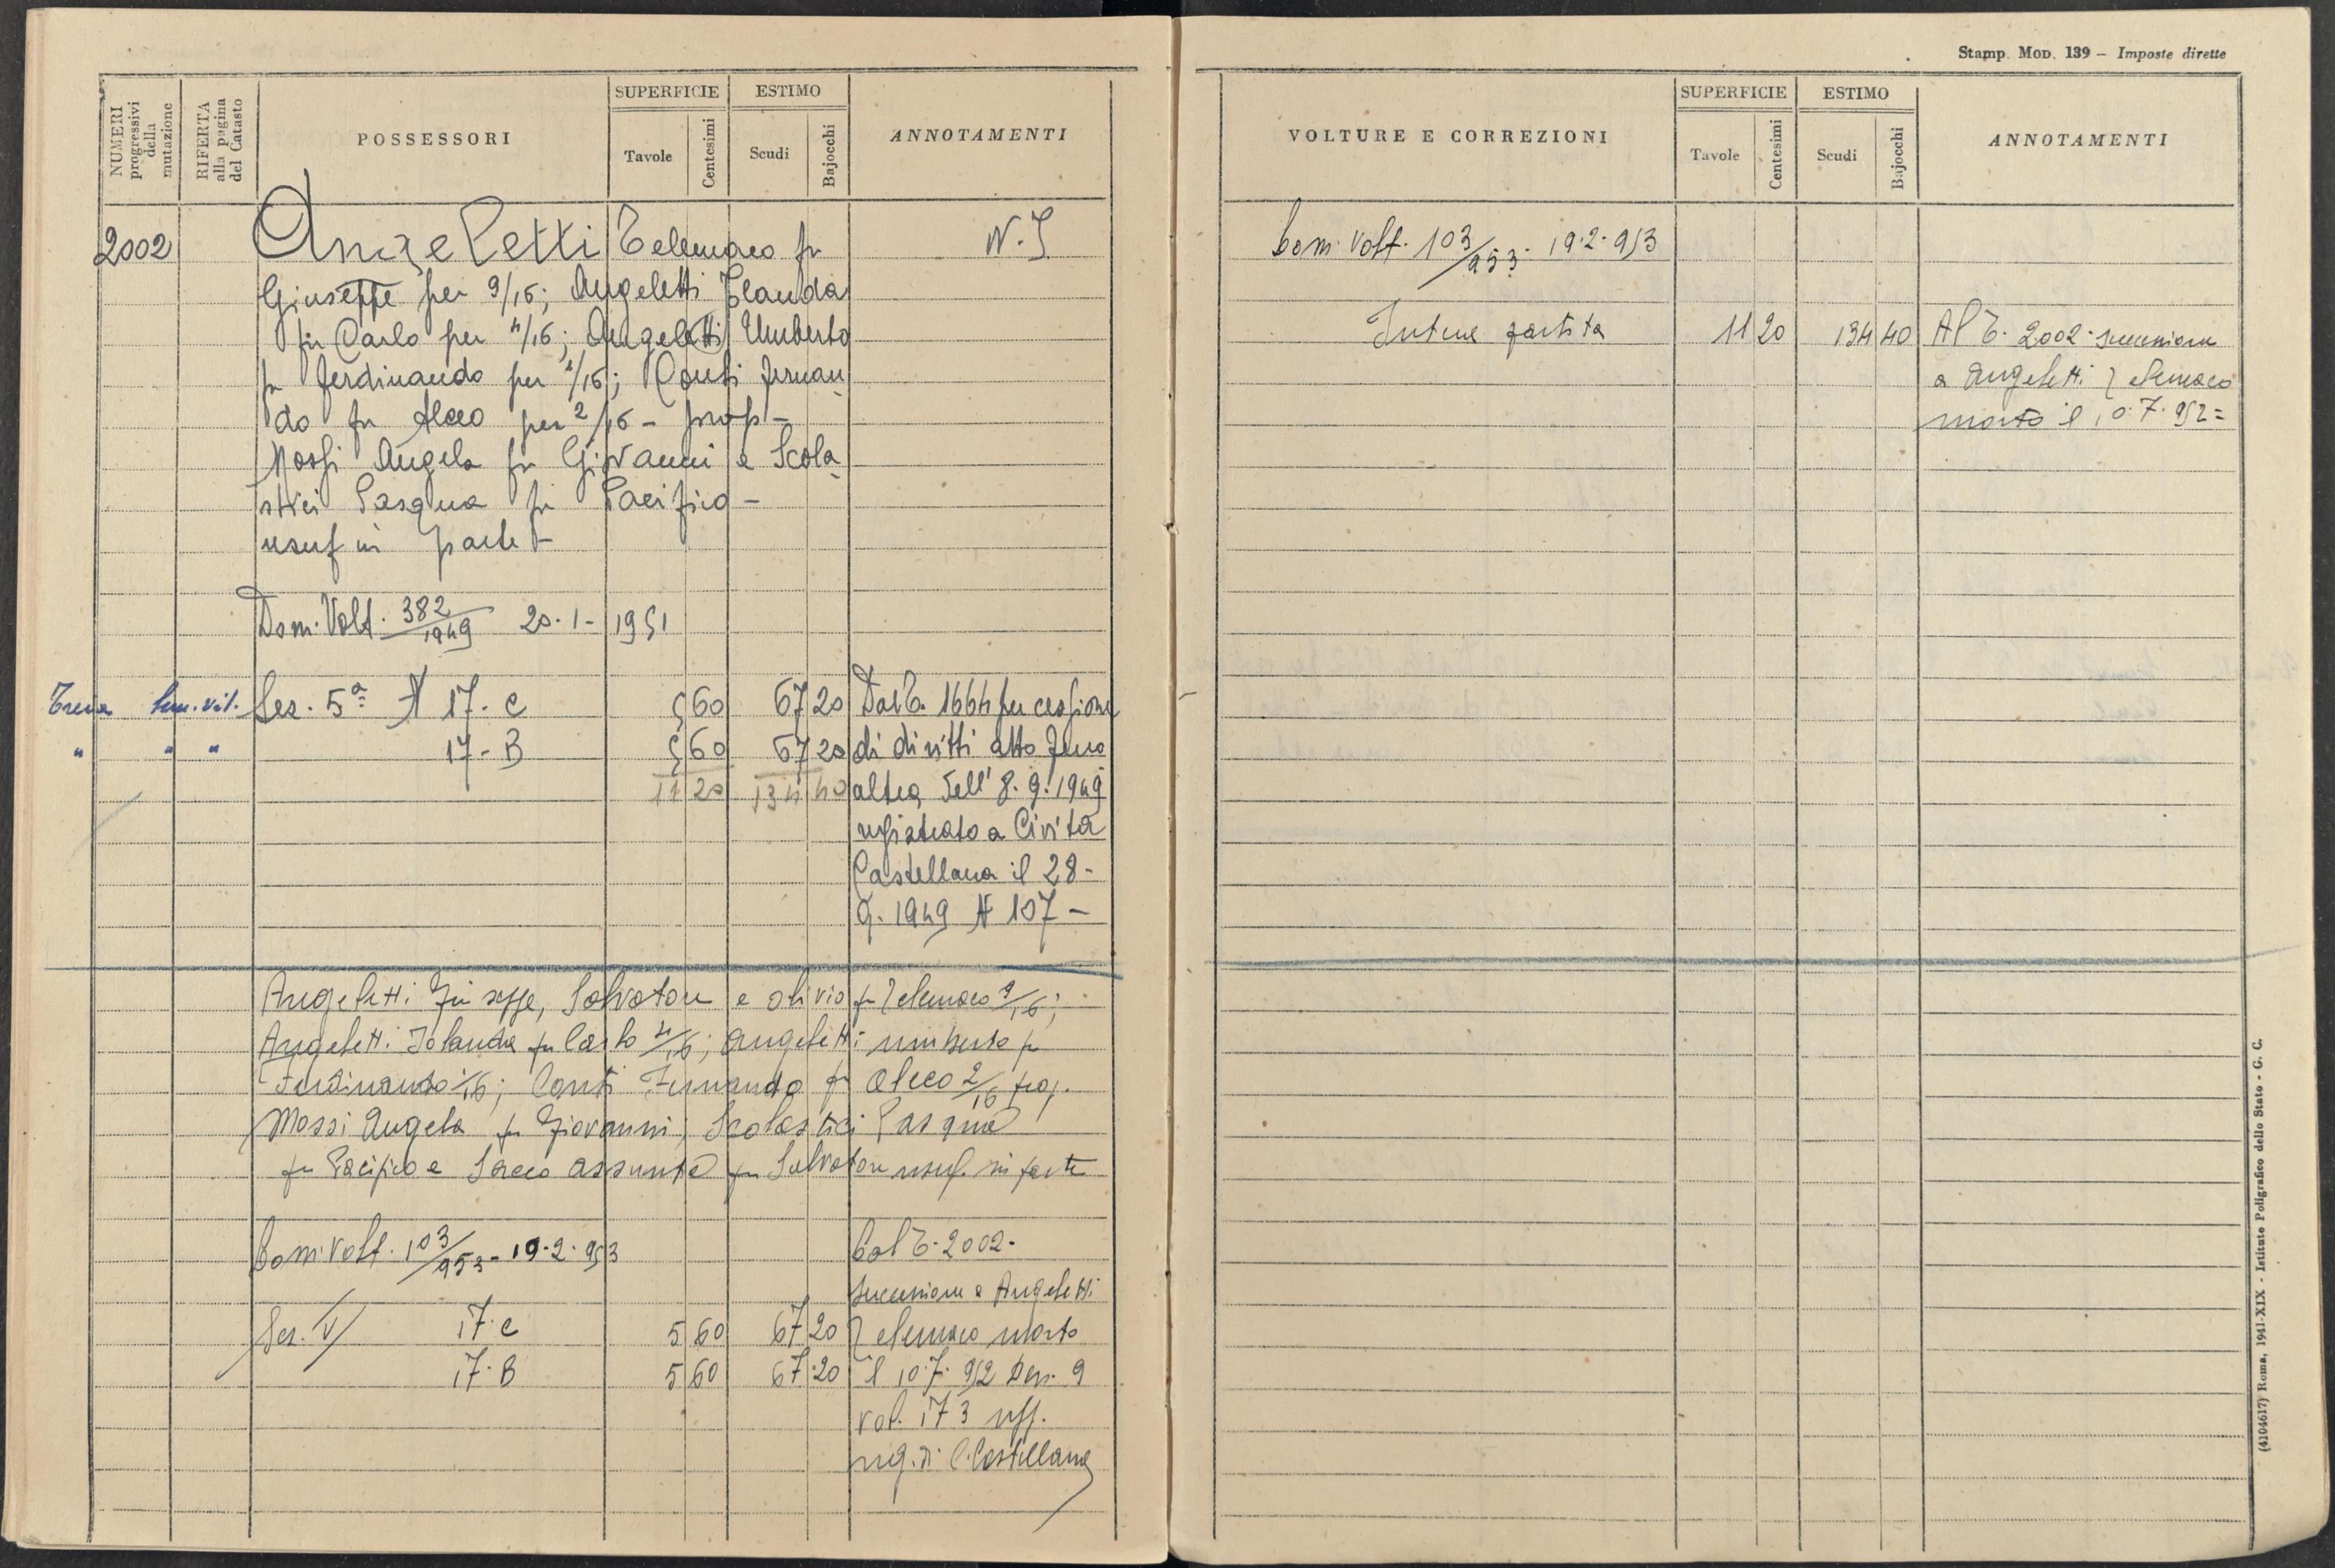 NUMERI progressivi della mutazione
RIFERTA alla pagina del Catasto
POSSESSORI
SUPERFICIE
Tavole
Centesimi
ESTIMO
Scudi
Bajocchi
ANNOTAMENTI
2002 Angeletti Telemaco fu N.S
Giuseppe per 9/16; Angeletti Jlanda
fu Carlo per 4/16; Angeletti Umberto
fu Ferdinando per 1/16; Conti Fernan
do fu Alceo per 2/16 - prop -
Mossi Angela fu Giovanni e Scola
stici Pasqua fu Pacifico -
usuf in parte -
Dom. Volt. 382/1949 20-1-1951
Treia Sem. vit. Sez. 5ª N 17-C 5 60 67 20 Dal T. 1664 per cessione
" " " 17-B 5 60 67 20 di diritti atto
11 20 134 40 dell' 8.9.1949
registrato a Civita
Castellana il 28-
9-1949 N 107 -
Angeletti Giuseppe, Salvatore e Olivio fu Telemaco 9/16;
Angeletti Jolanda fu Carlo 4/16; Angeletti Umberto fu
Ferdinando 1/16; Conti Fernando fu Alceo 2/16 prop.
Mossi Angela fu Giovanni; Scolastici Pasqua
fu Pacifico e Sacco Assunta fu Salvatore usuf. in parte
Dom. Volt. 103/953 - 19-2-953 Dal T. 2002.
successione a Angeletti
Sez. V 17-C 5 60 67 20 Telemaco morto
17-B 5 60 67 20 il 10.7.952 Den. 9
vol. 173 uff.
reg. di C. Castellana
Stamp. Mod. 139 – Imposte dirette
VOLTURE E CORREZIONI
SUPERFICIE
Tavole
Centesimi
ESTIMO
Scudi
Bajocchi
ANNOTAMENTI
Dom. Volt. 103/953 - 19-2-953
Intera partita 11 20 134 40 Al T. 2002 successione
a Angeletti Telemaco
morto il 10.7.952 =
(4104617) Roma, 1941-XIX - Istituto Poligrafico dello Stato - G. C.